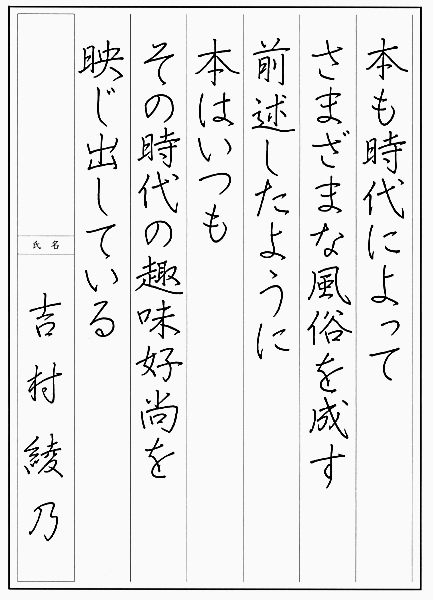 本も時代によって
さまざまな風俗を成す
前述したように
本はいつも
その時代の趣味好尚を
映じ出している
氏名
吉村綾乃